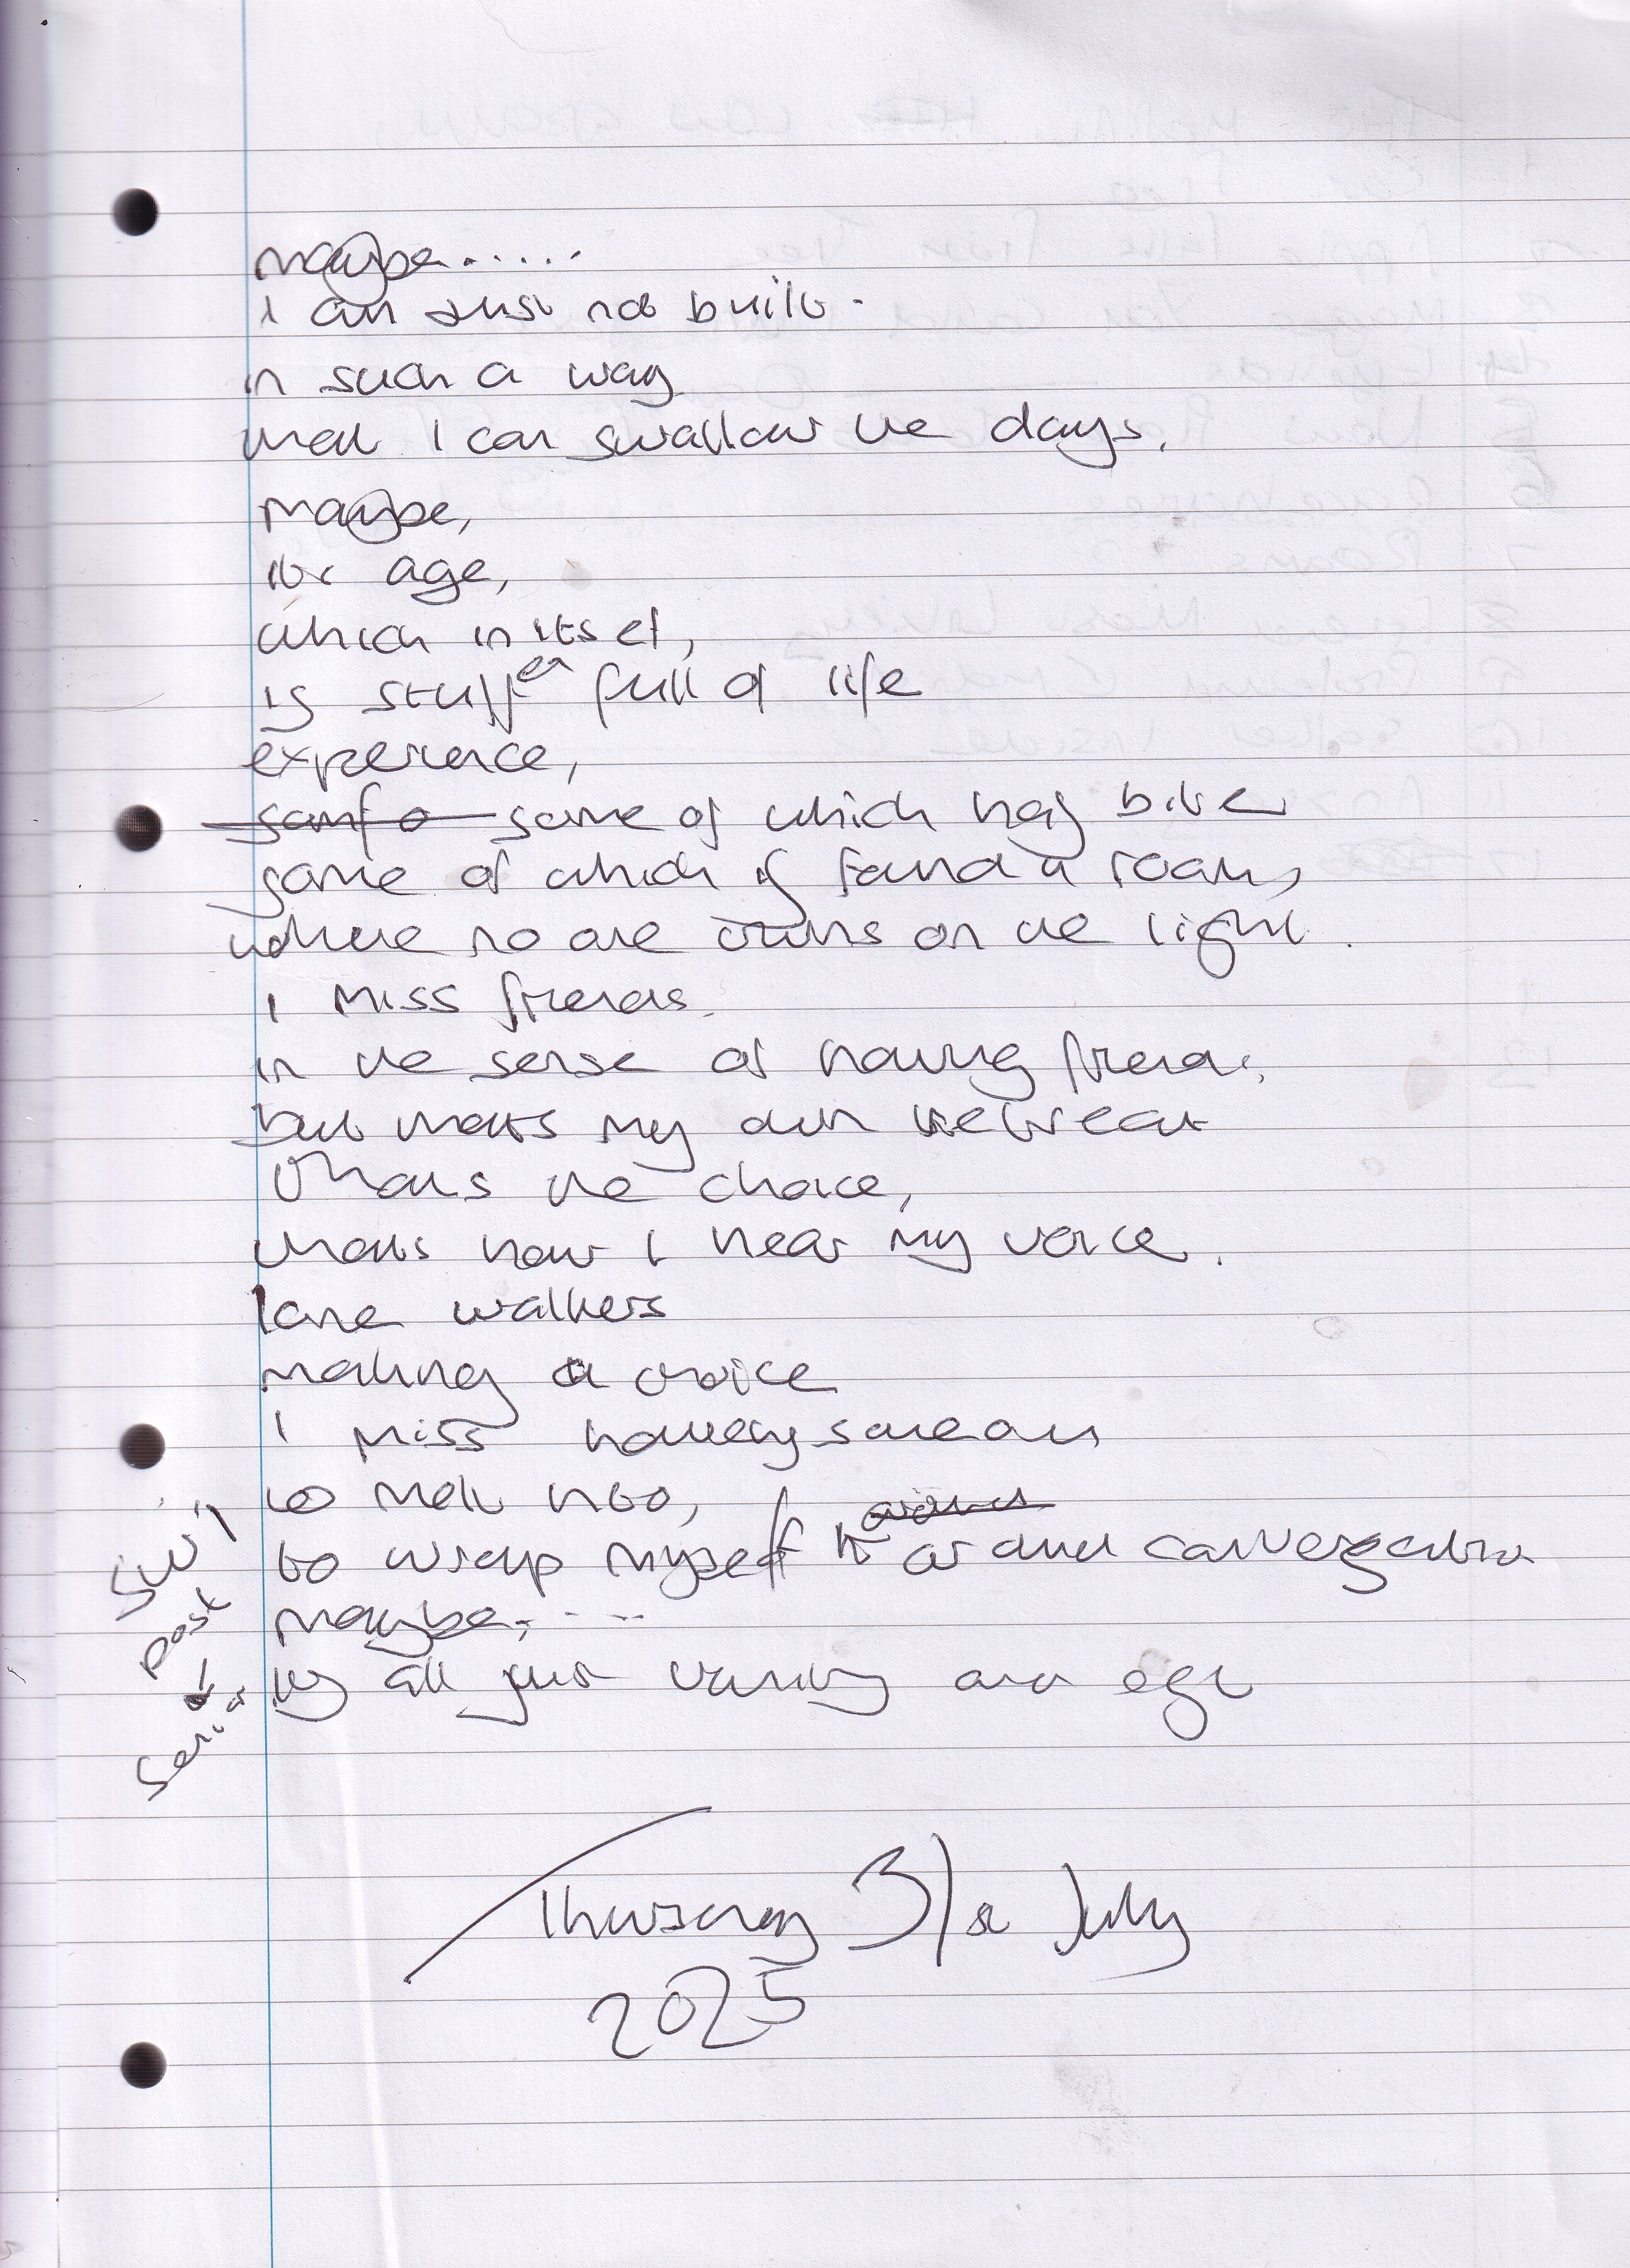 maybe......
I am just not built.
in such a way
that I can swallow the days.
maybe,
its age,
which in itself,
is stuffed full of life
experience,
some of which has bite
some of which is found a room,
where no one turns on the light.
I miss friends.
in the sense of having friends,
but thats my own
thats the choice,
thats how I hear my voice.
lone walkers
making a choice
I miss having someone
to melt into,
to wrap myself around conversation
maybe.....
its all just vanity and ego
post
Thursday 31st July
2025